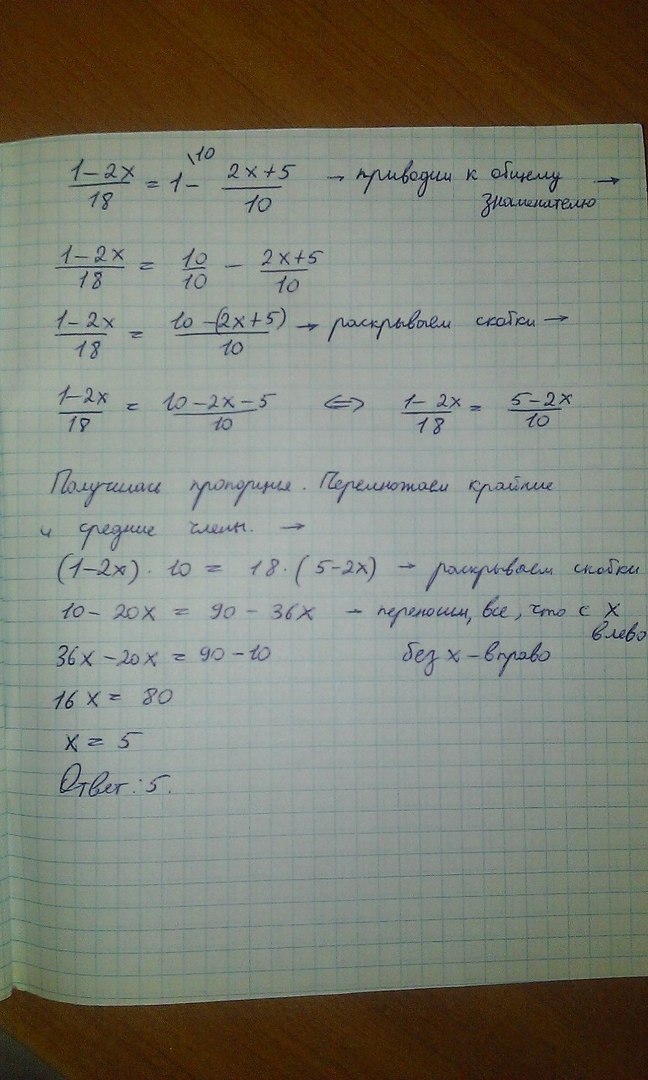 (1-2x)/18 = 1\10 - (2x+5)/10 → приводим к общему знаменателю →
(1-2x)/18 = 10/10 - (2x+5)/10
(1-2x)/18 = (10-(2x+5))/10 → раскрываем скобки →
(1-2x)/18 = (10-2x-5)/10 <=> (1-2x)/18 = (5-2x)/10
Получилась пропорция. Перемножаем крайние
и средние члены. →
(1-2x)·10 = 18·(5-2x) → раскрываем скобки
10-20x = 90-36x → переносим, все, что с x влево
36x-20x = 90-10 без x - вправо
16x = 80
x = 5
Ответ: 5.